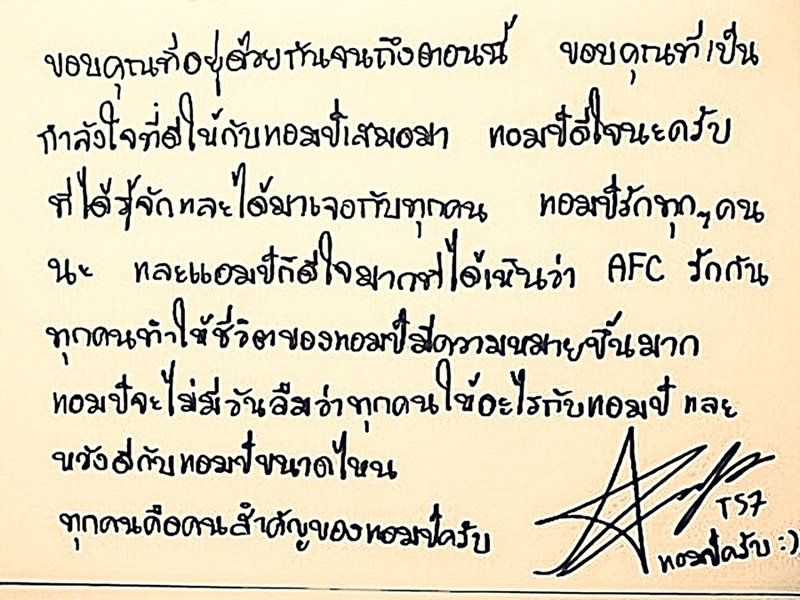 ขอบคุณที่อยู่ด้วยกันจนถึงตอนนี้ ขอบคุณที่เป็น
กำลังใจที่ดีให้กับแอมป์เสมอมา แอมป์ดีใจนะครับ
ที่ได้รู้จักและได้มาเจอกับทุกคน แอมป์รักทุกๆคน
นะ และแอมป์ก็ดีใจมากที่ได้เห็นว่า AFC รักกัน
ทุกคนทำให้ชีวิตของแอมป์มีความหมายขึ้นมาก
แอมป์จะไม่มีวันลืมว่าทุกคนให้อะไรกับแอมป์ และ
หวังดีกับแอมป์ขนาดไหน
ทุกคนคือคนสำคัญของแอมป์ครับ
TS7
แอมป์ครับ :)